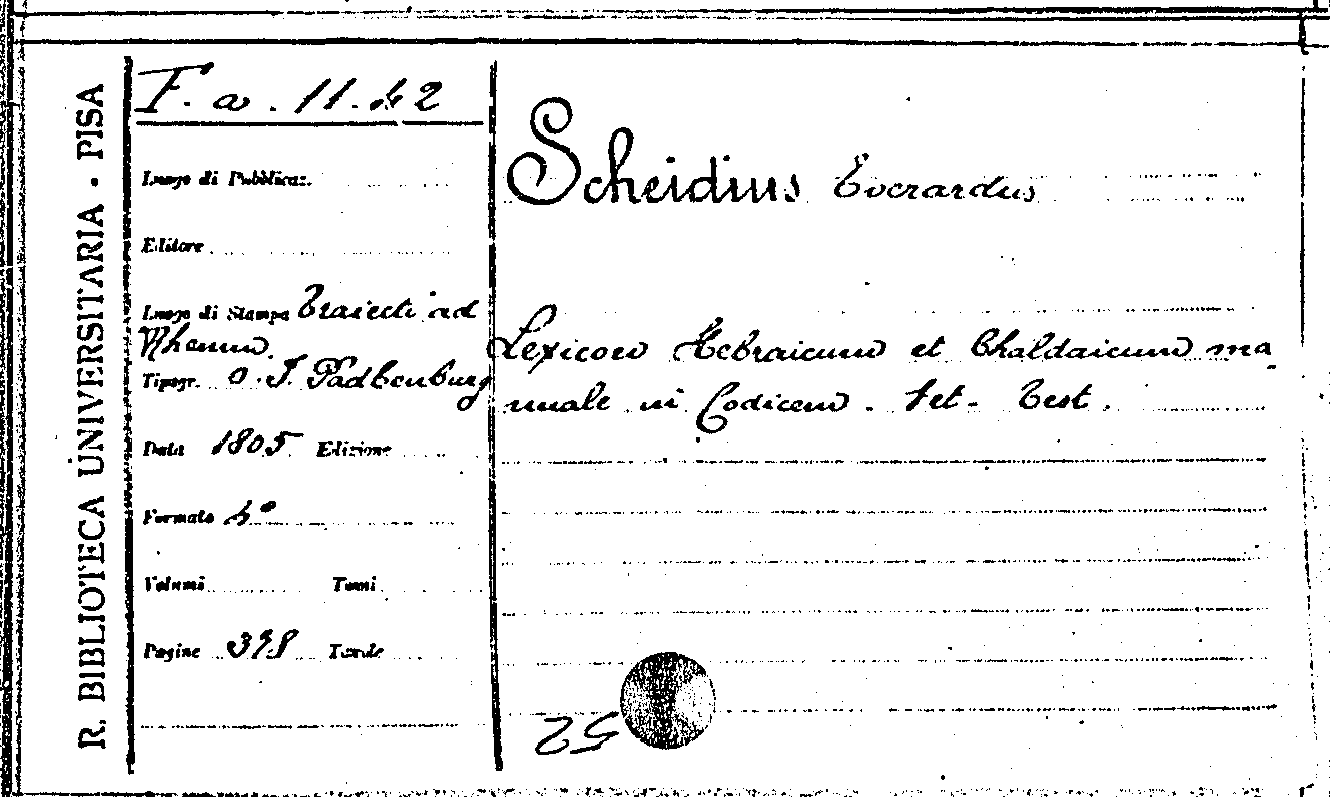 R. BIBLIOTECA UNIVERSITARIA - PISA
F. a. 11. 42
Luogo di Pubblicaz.
Editore
Luogo di Stampa Traiecti ad
Rhenum.
Tipogr. O. J. Padbenburg
Data 1805 Edizione
Formato 4°
Volumi Tomi
Pagine 398 Tavole
Scheidius Everardus
Lexicon Hebraicum et Chaldaicum ma-
nuale in Codicem. Vet. Test.
52